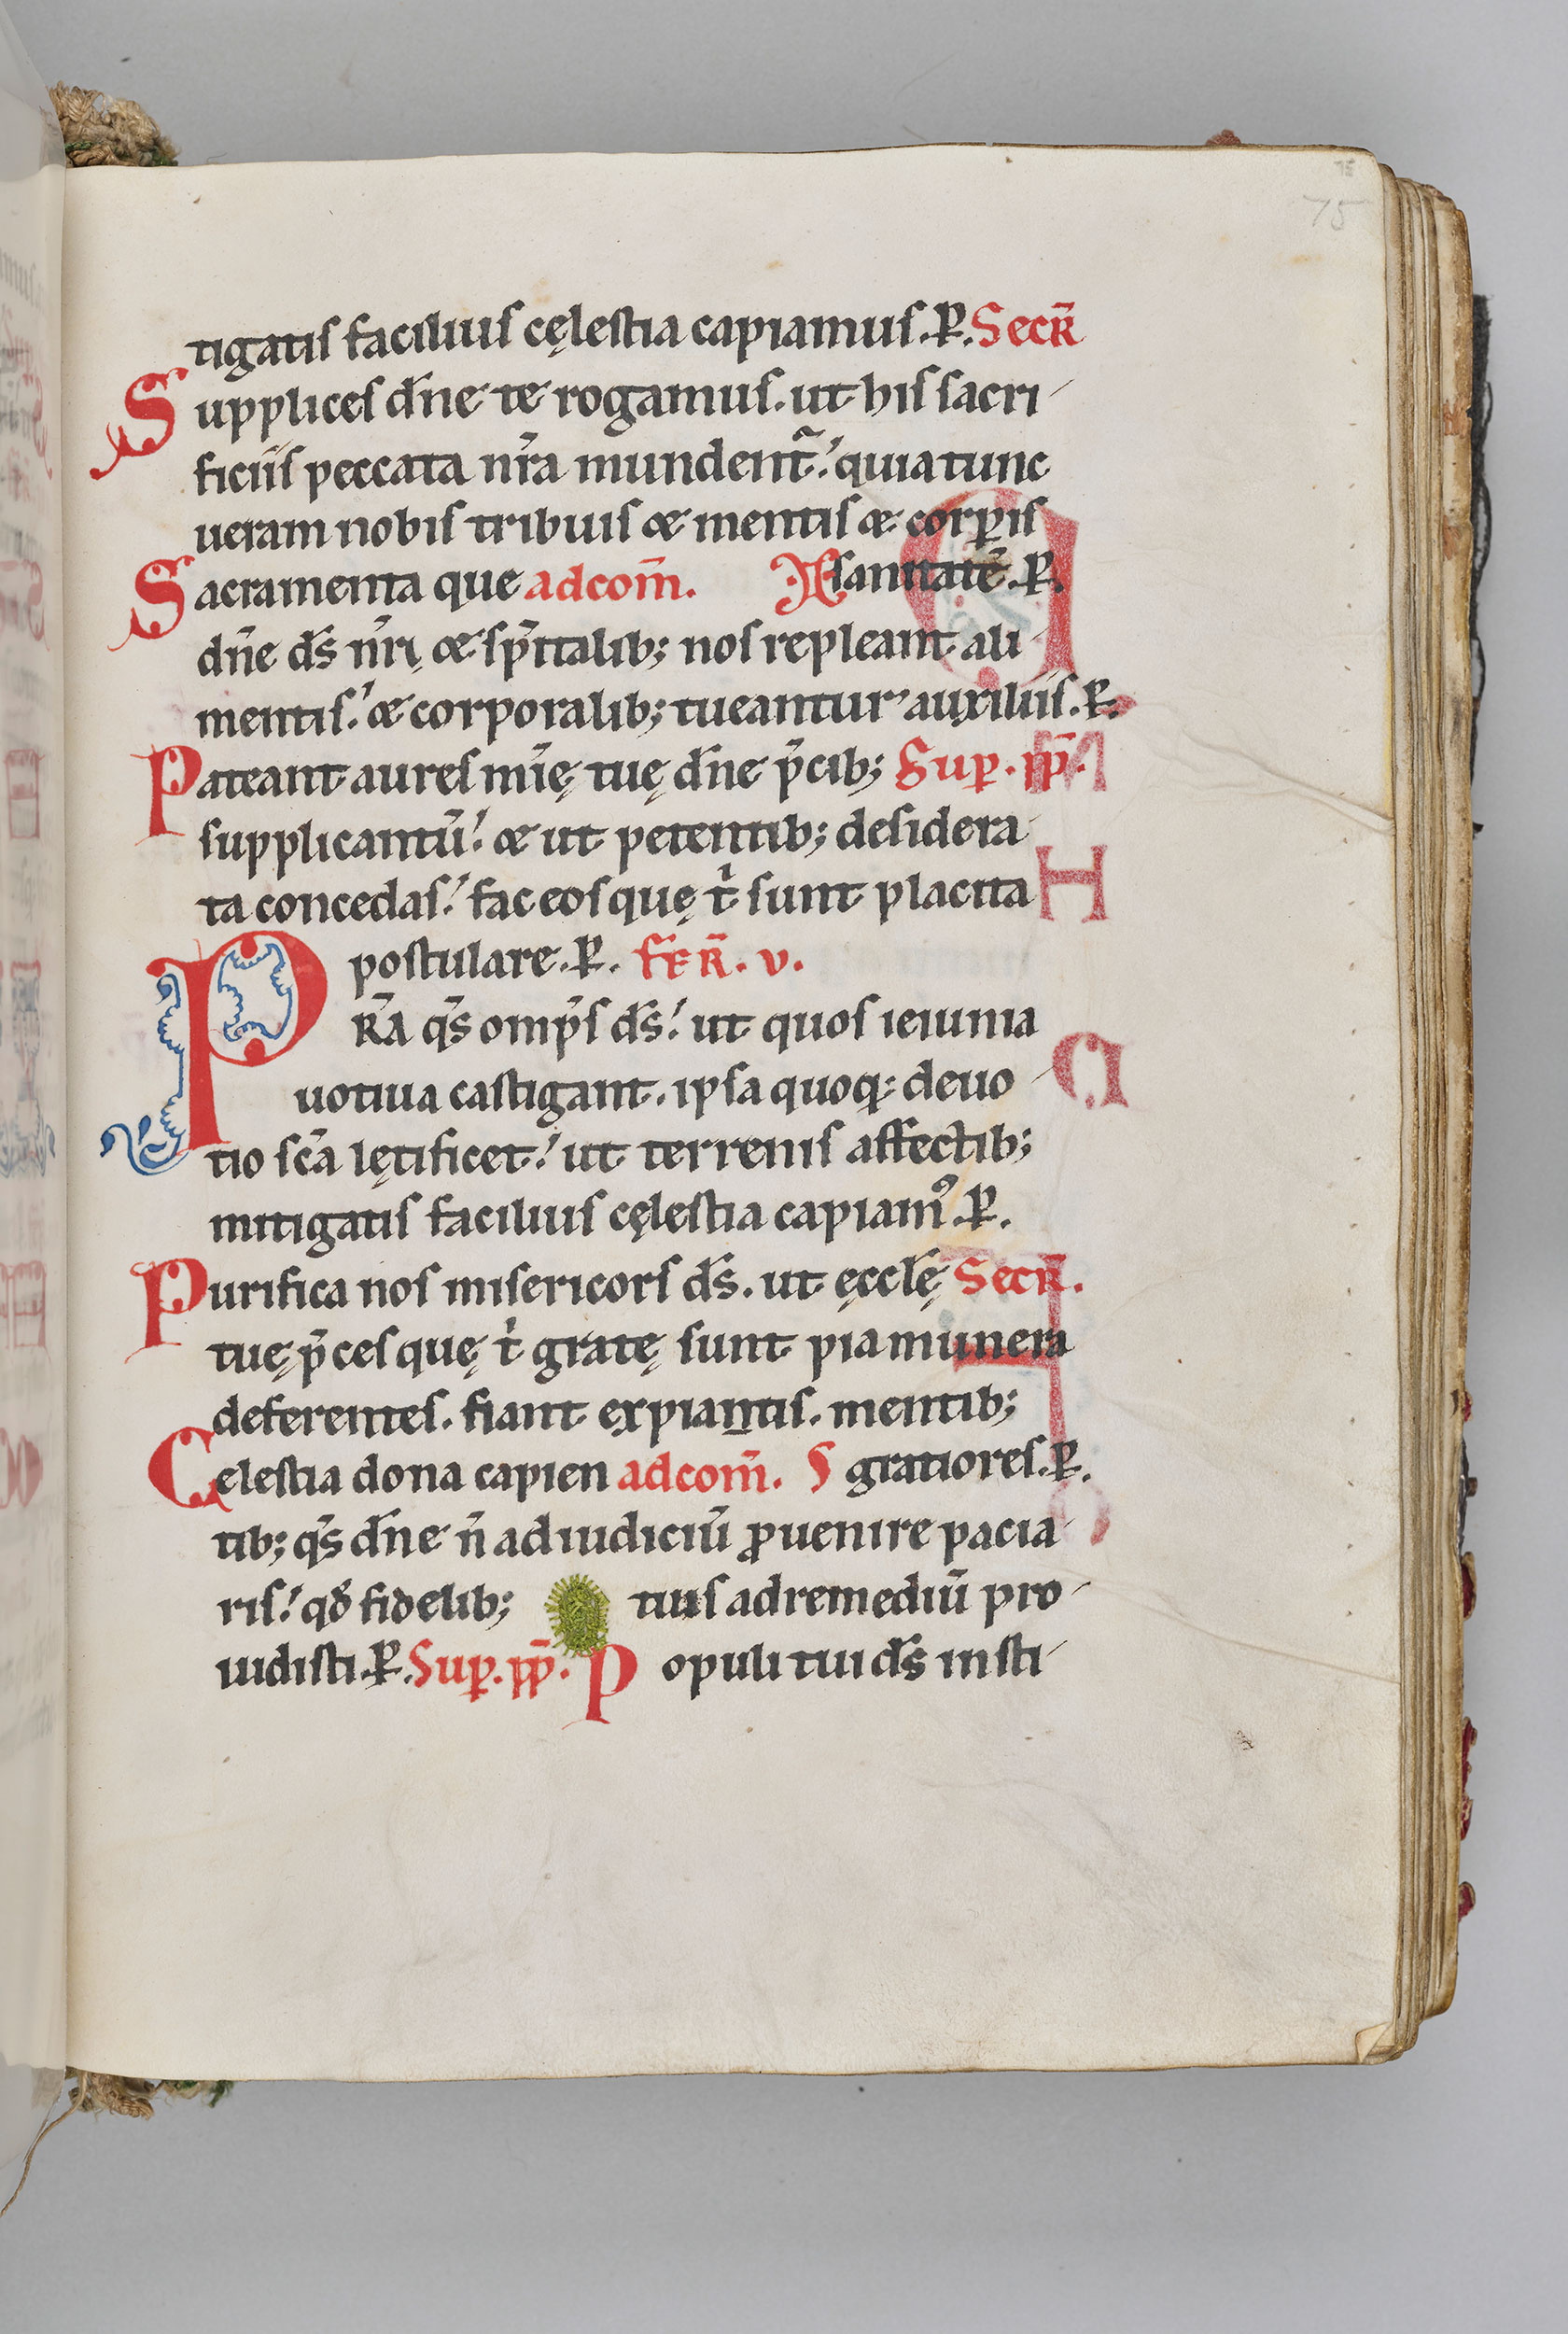 75
75
tigatis facilius cęlestia capiamus. P̄. Secr̄
Supplices dn̄e te rogamus. ut his sacri-
ficiis peccata nr̄a mundent̄.' quia tunc
ueram nobis tribuis & mentis & corꝑis
Sacramenta que ad com̄. sanitatē. P̄.
dn̄e ds̄ nr̄i, & sp̄italib; nos repleant ali-
mentis.' & corporalib; tueantur auxiliis. P̄.
Pateant aures mīę tuę dn̄e p̄cib; Suꝑ. pp̄.
supplicantū.' & ut petentib; desidera-
ta concedas.' fac eos quę t̄ sunt placita
postulare. P̄. FER̄. v.
PR̄A qs̄ omp̄s ds̄.' ut quos ieiunia
uotiua castigant. ipsa quoq; deuo-
tio sc̄a lętificet.' ut terrenis affectib;
mitigatis facilius cęlestia capiamꝰ. P̄.
Purifica nos misericors ds̄. ut ęccl̄ę Secr̄.
tuę p̄ces quę t̄ gratę sunt pia munera
deferentes. fiant expiantis. mentib;
Celestia dona capien ad com̄. gratiores. P̄.
tib; qs̄ dn̄e n̄ ad iudiciū ꝓuenire pacia-
ris.' qđ fidelib; tuis ad remediū pro-
uidisti. P̄. Suꝑ. pp̄. Populi tui ds̄ insti-